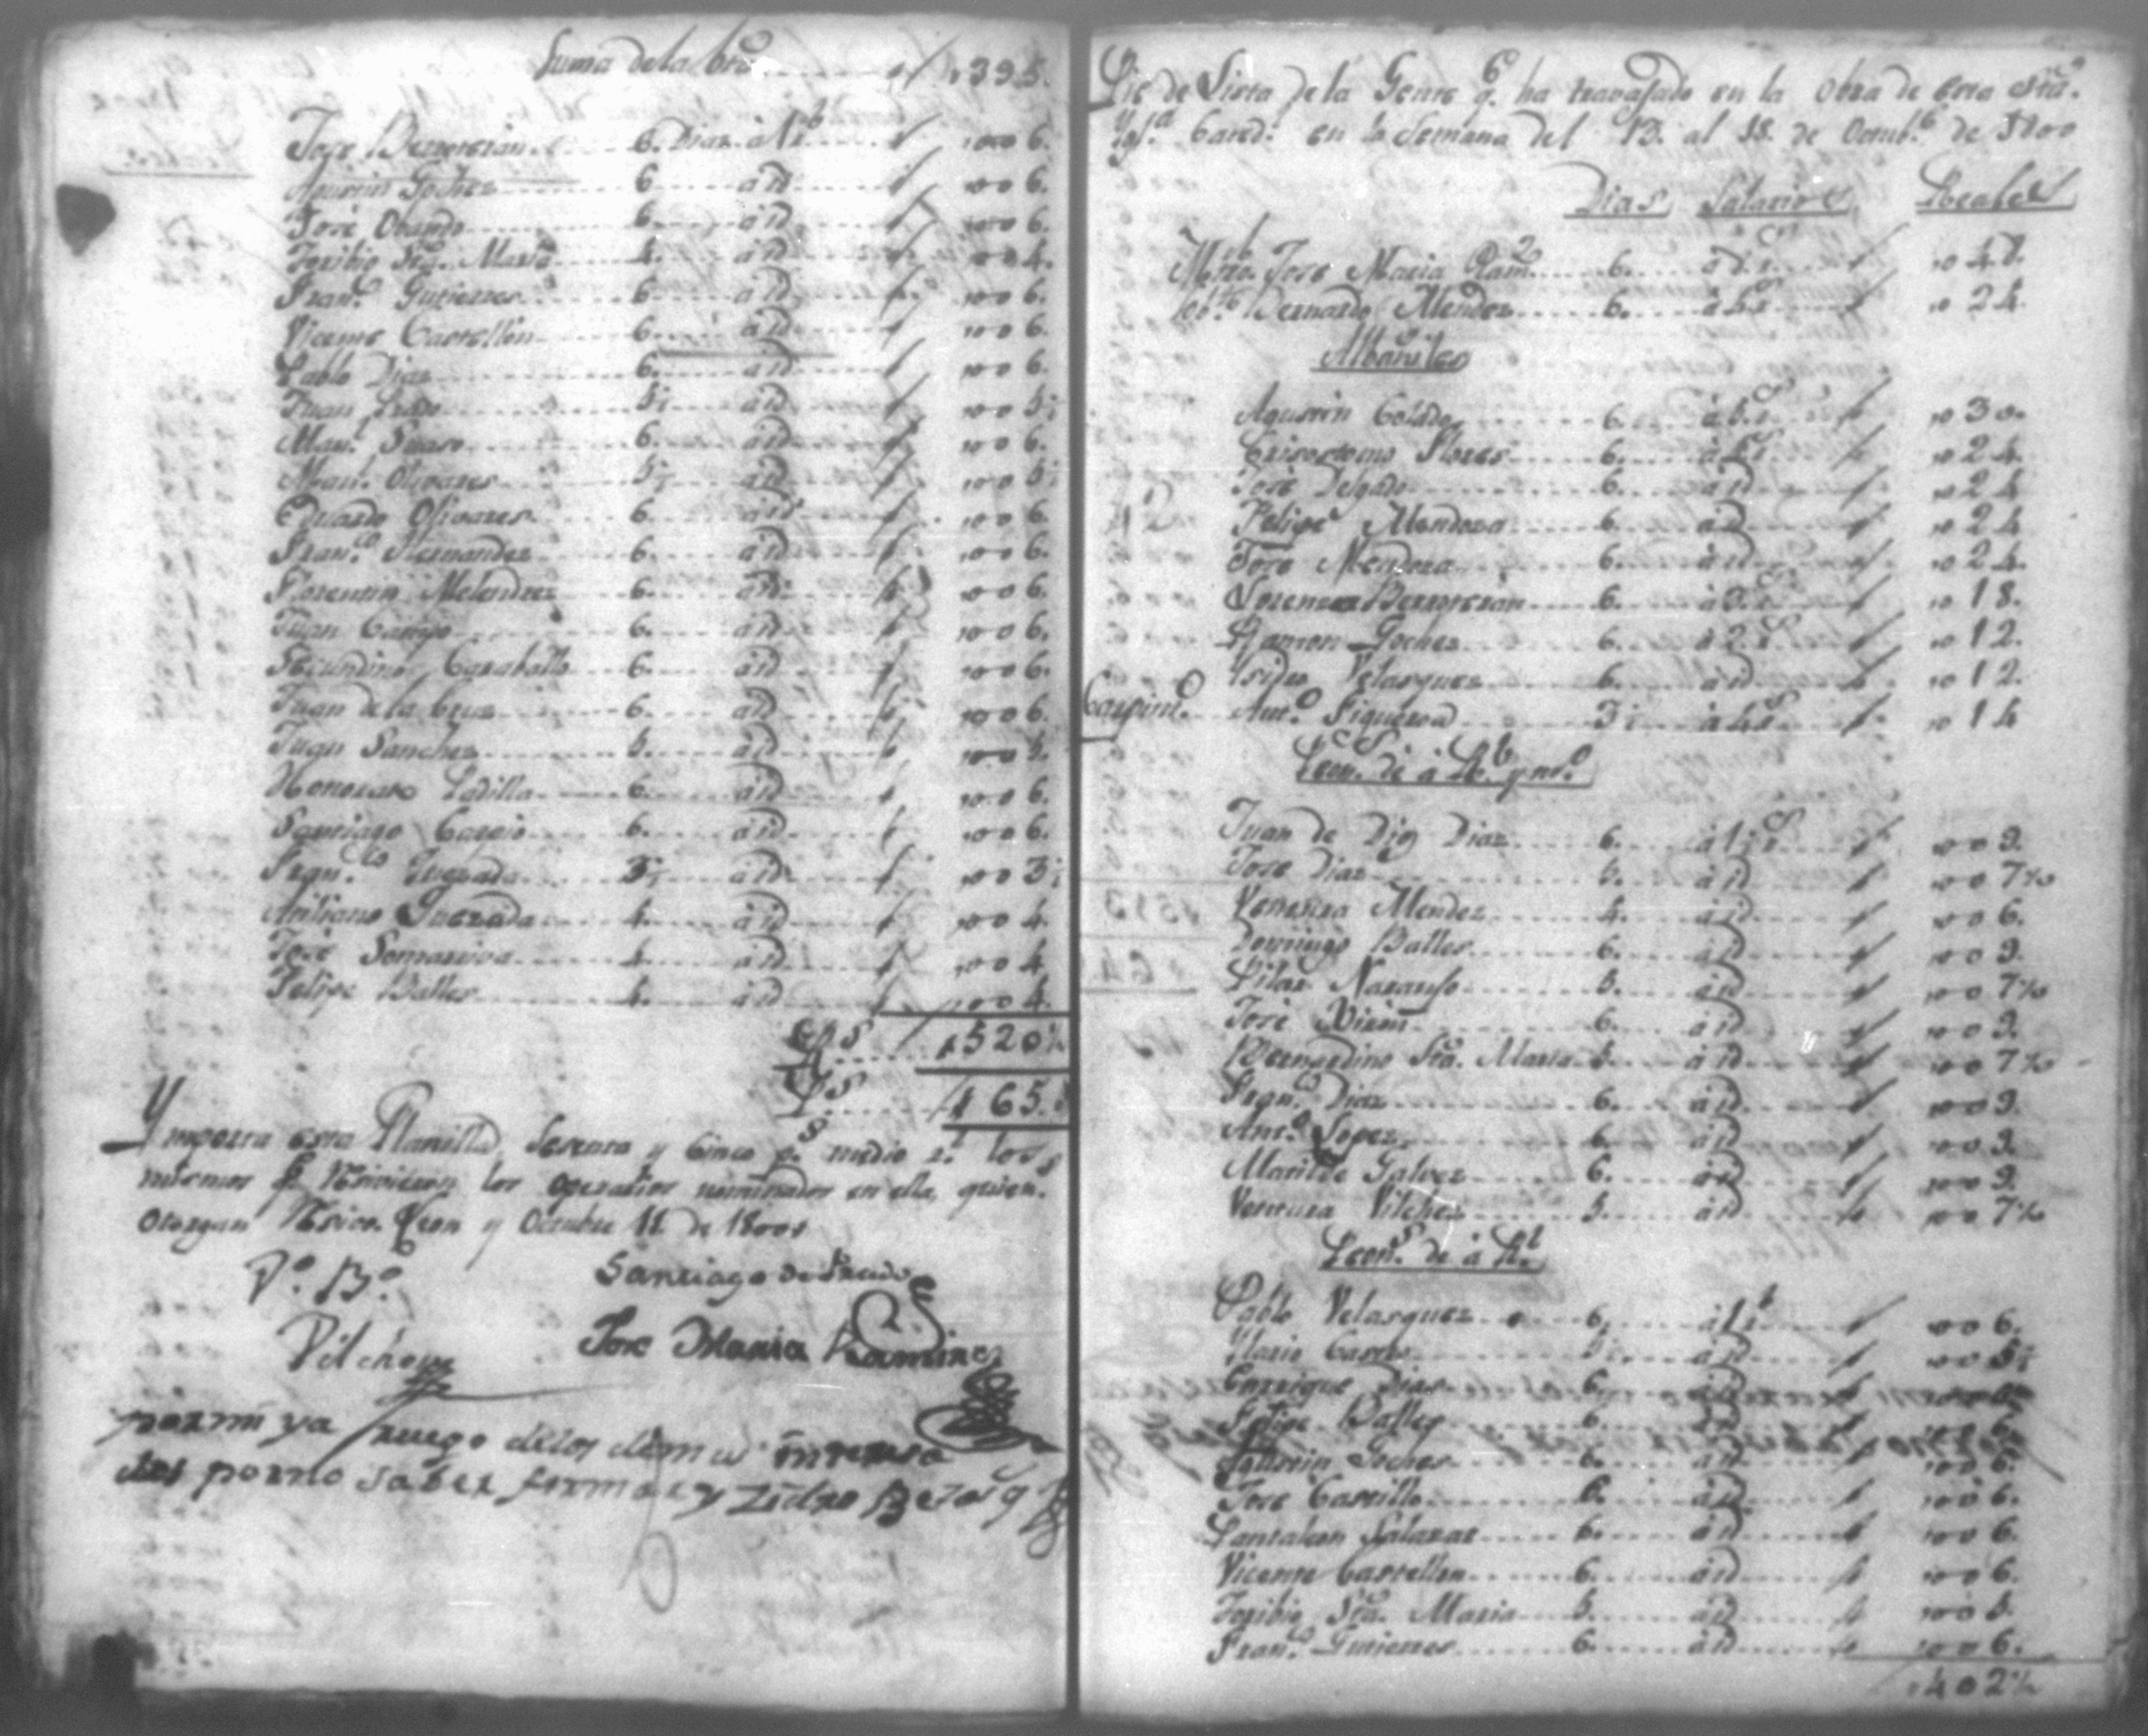 Suma de la bta 395.
Jose Berroteran 6. Dias a 1 r.l 006.
Agustin Gochez 6. a id 006.
José Obando 6. a id 006.
Toribio Sta. Maria 4. a id 004.
Fran.co Gutierres 6. a id 006.
Vicente Castellon 6. a id 006.
Pablo Diaz 6. a id 006.
Juan 5½ a id 005½
Man.l Suaso 6. a id 006.
Man.l Olivares 5½ a id 005½
Eduardo Olivares 6. a id 006.
Fran.co Hernandez 6. a id 006.
Florentin Melendrez 6. a id 006.
Juan Campo 6. a id 006.
Secundino Caraballo 6. a id 006.
Juan de la Cruz 6. a id 006.
Juan Sanchez 5. a id 005.
Honorato Padilla 6. a id 006.
Santiago Carcio 6. a id 006.
Fran.co Quezada 3½ a id 003½
Quezada 4. a id 004.
José Somarriva 4. a id 004.
Felipe Balles 4. a id 004.
R.s 520½
P.s 65.
Ymporta esta Planilla, sesenta y cinco p.s medio r.l los
mismos q.e recivieron los operarios nominados en ella, quien.s
otorgan recivo. Leon y Octubre 11 de 1800
V.o B.o
Santiago de Prado
Vilchez
Jose Maria Ramirez
por mi y a ruego de los demas interesa
dos por no saber firmar y
Lis de Lista de la Gente q.e ha travajado en la obra de esta sta.
Ygl.a Cated.l en la Semana del 13. al 18. de Octub.e de 1800
Dias Salarios Reales
Mtro. Jose Maria Ram.z 6. a 8 r.s 048.
Sob.te Bernardo Mendez 6. a 4 r.s 024.
Albañiles
Agustin Colado 6. a 5 r.s 030.
Crisostomo Flores 6. a 4 r.s 024.
José Delgado 6. a id 024
Felipe Mendoza 6. a id 024
José Mendoza 6. a id 024.
Lorenzo Berroteran 6. a 3 r.s 018.
Ramon Gochez 6. a 2 r.s 012.
Isidro Velasquez 6. a id 012.
Carpint.o Ant.o Figueroa 3½ a 4 r.s 014
Peon.s de a R.l y m.o
Juan de Dios Diaz 6. a 1½ r.s 009.
José Diaz 5. a id 007½
Venansia Mendez 4. a id 006.
Domingo Balles 6. a id 009.
Pilar Naranjo 5. a id 007½
José 6. a id 009.
Bernardino Sta. Maria 5. a id 007½
Fran.co Diaz 6. a id 009.
Ant.o Lopez 6. a id 009.
Matilde Galvez 6. a id 009.
Ventura Vilchez 5. a id 007½
Peon.s de a R.l
Pablo Velasquez 6. a 1 r.l 006.
Mario Castro 5½ a id 005½
Enrrique Dias 6. a id 006.
Felipe Balles 6. a id 006.
Agustin Gochez 6. a id 006.
José Castillo 6. a id 006.
Pantaleon Salazar 6. a id 006.
Vicente Castellon 6. a id 006.
Toribio Sta. Maria 5. a id 005.
Fran.co Gutierres 6. a id 006.
402½